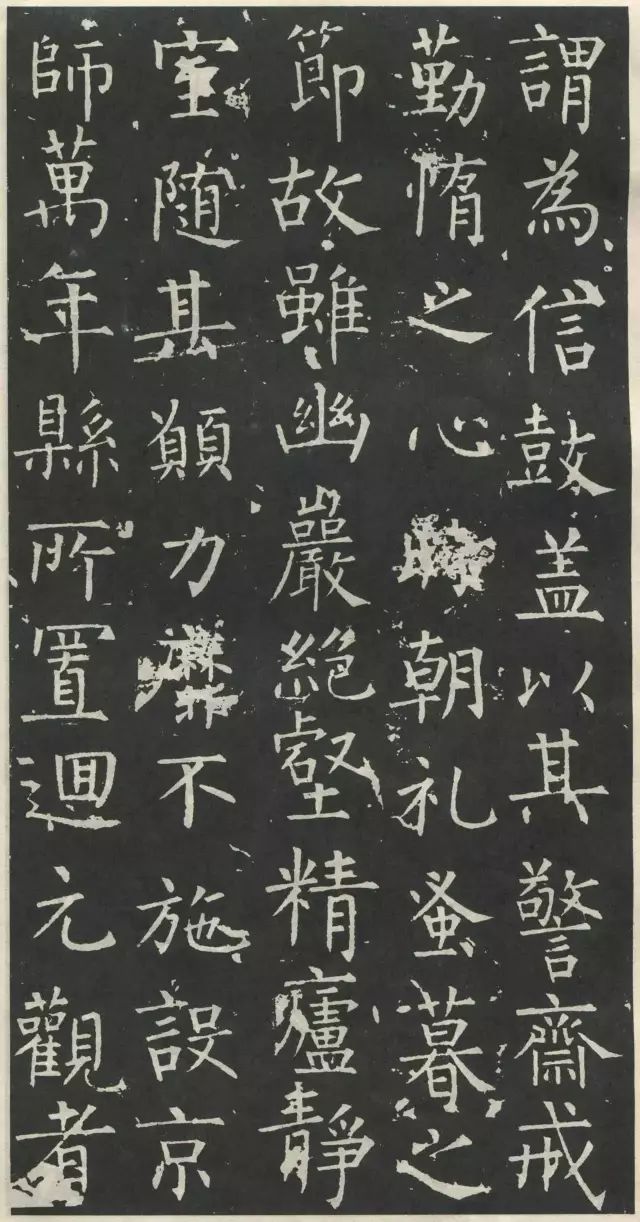 謂為信鼓盖以其警齋戒
勤惰之心時朝礼蚤暮之
節故雖幽巖絕壑精廬靜
室隨其願力靡不施設京
師萬年縣所置迴元觀者